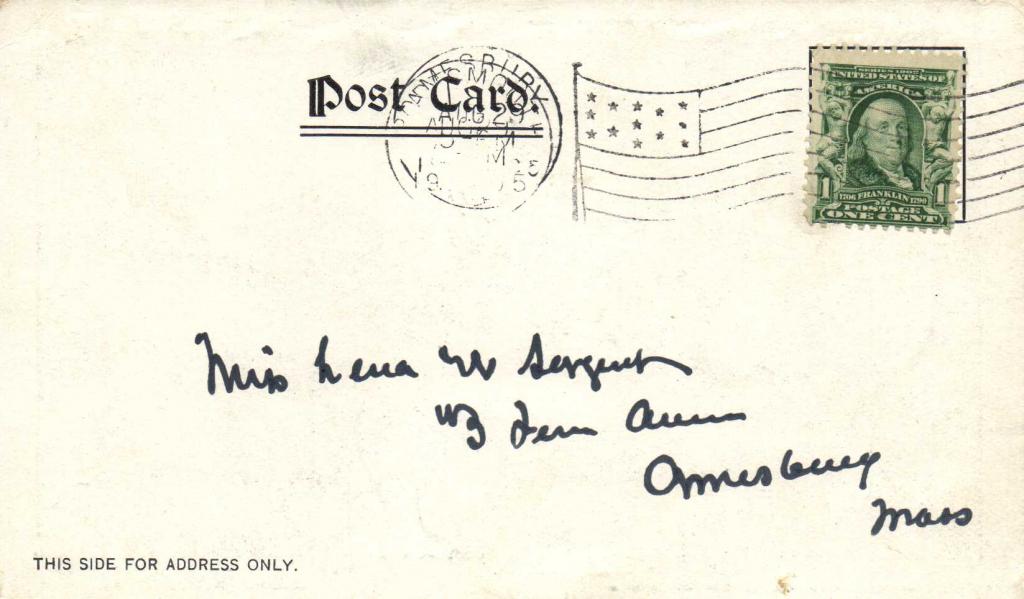 Post Card.
AMESBURY
AUG 29
SERIES 1902
UNITED STATES OF
AMERICA
1706 FRANKLIN 1790
POSTAGE
1 ONE CENT
Miss Lena W Sergent
Amesbury
Mass
THIS SIDE FOR ADDRESS ONLY.